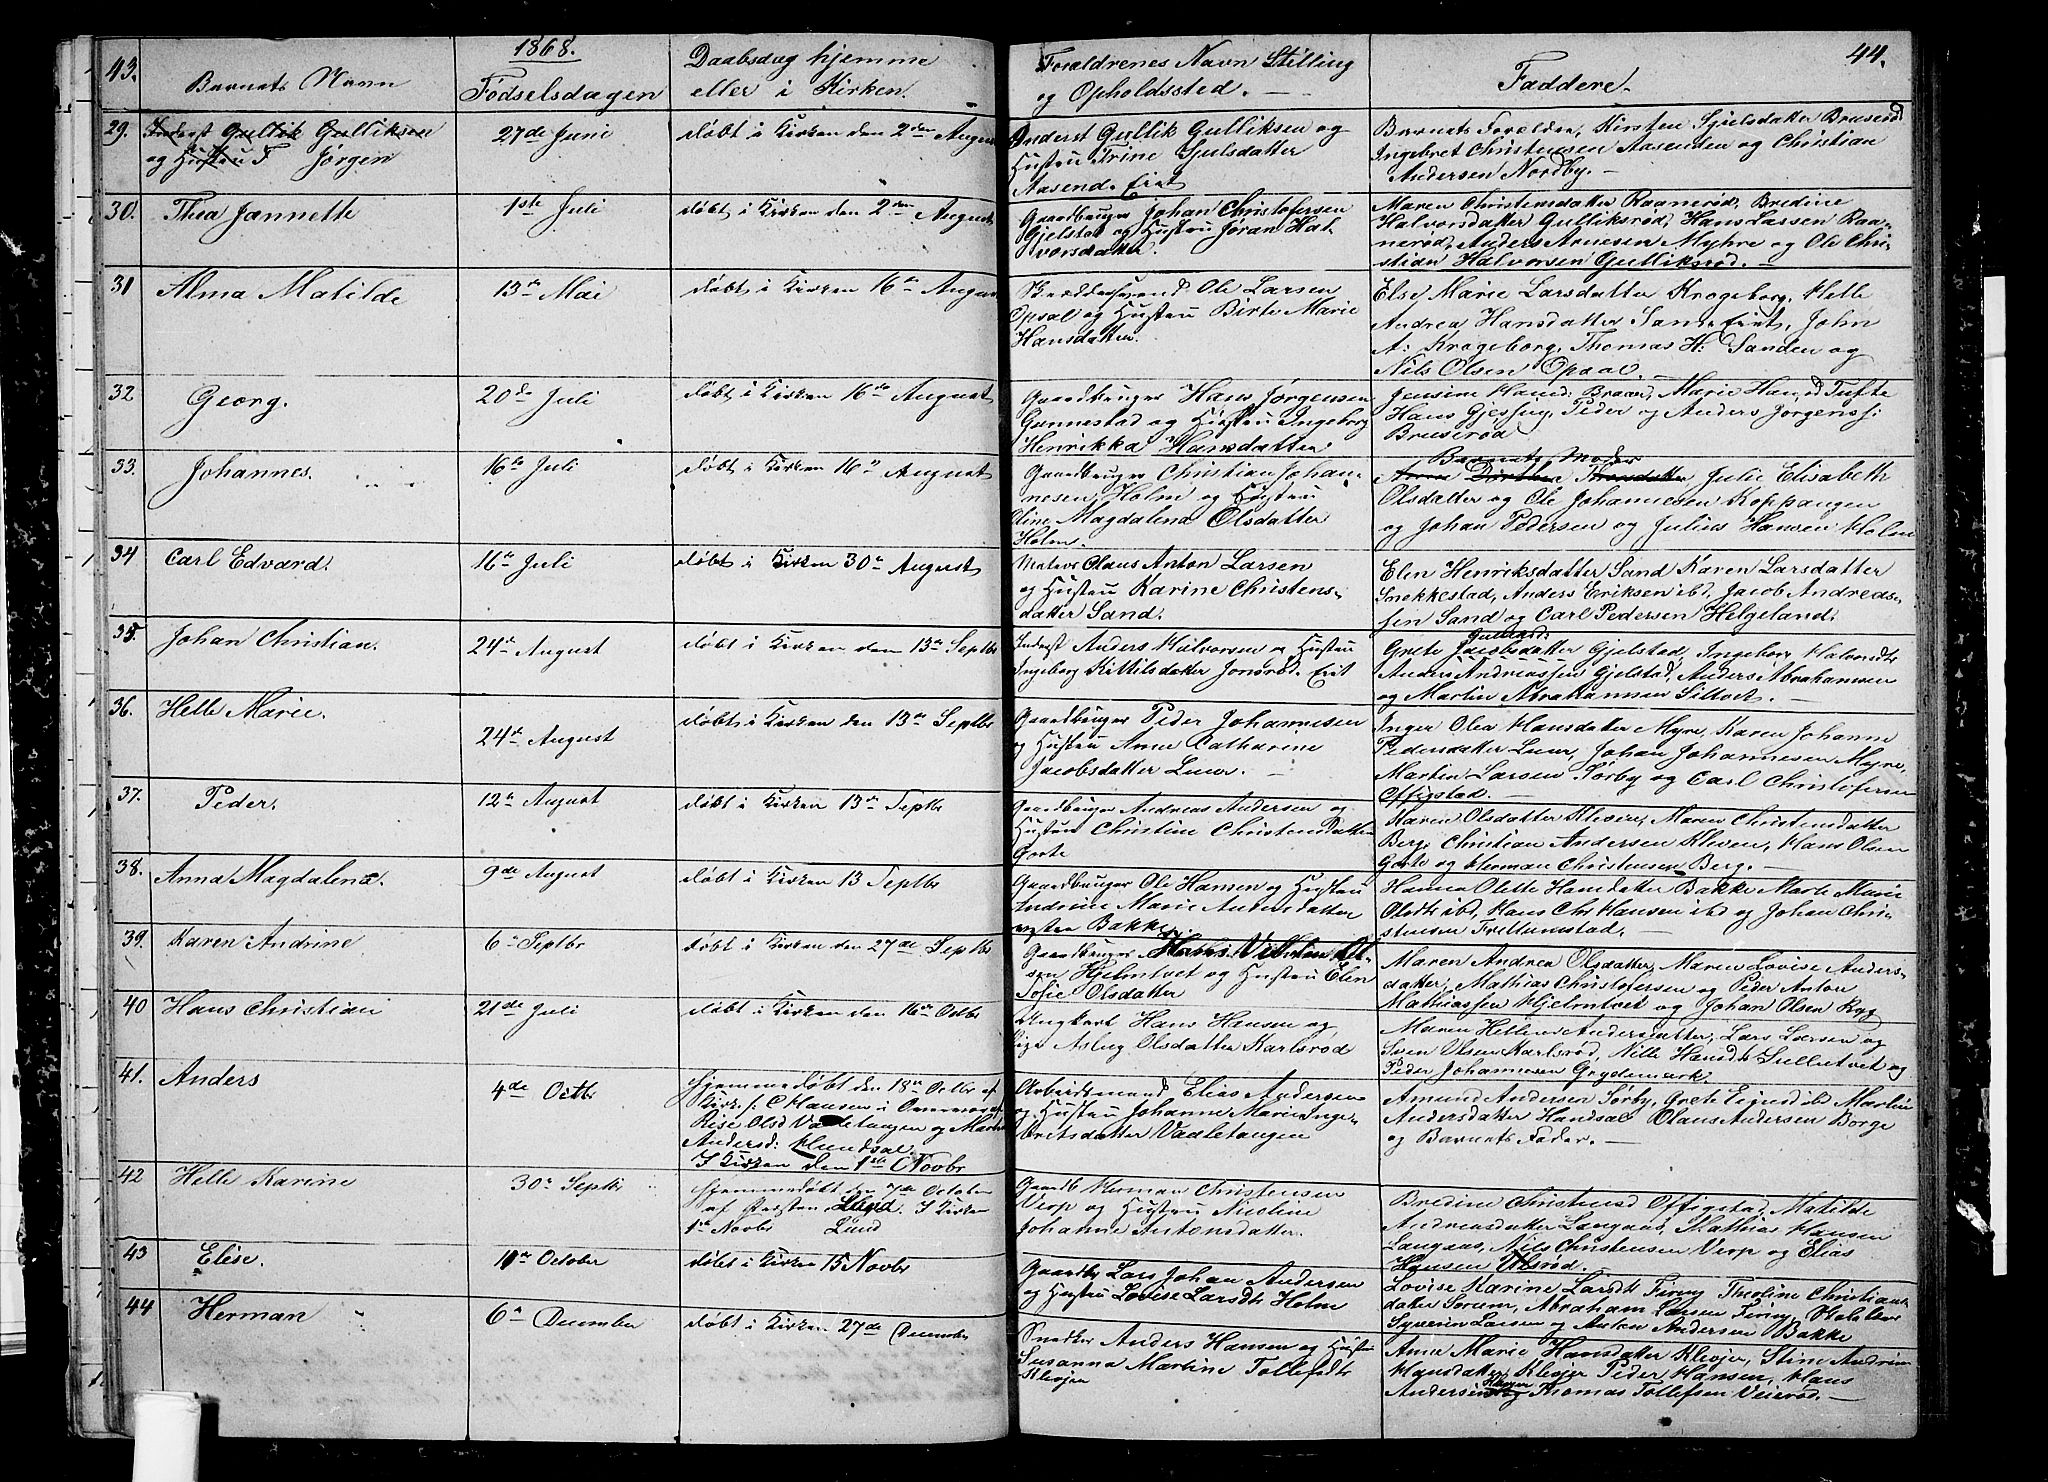 43.
1868.
Barnets Navn
Fødselsdagen
Daabsdag hjemme
eller i Kirken.
Forældrenes Navn Stilling
og Opholdssted.
Faddere.
44.
29. Inderst Gullik Gulliksen
og Hustru T Jørgen
27de Juni
døbt i Kirken den 2den August
Inderst Gullik Gulliksen og
Hustru Trine Gjulsdatter
Aasend. Eiet
Barnets Forældre, Kirsten Gjulsdatter Bruserød
Ingebret Christensen Aasenden og Christian
Andersen Nordby.
30. Thea Jannette
1ste Juli
døbt i Kirken den 2den August
Gaardbruger Johan Christofersen
Gjelstad og Hustru Jøran Hal-
vorsdatter.
Maren Christensdatter Raanerød, Bredine
Halvorsdatter Gulliksrød, Hans Larsen Raa-
nerød, Anders Arnesen Myhre og Ole Chri-
stian Halvorsen Gulliksrød.
31 Alma Matilde
13de Mai
døbt i Kirken 16de August
Ole Larsen
Opsal og Hustru Birte Marie
Hansdatter.
Else Marie Larsdatter Krogeborg, Helle
Andrea Hansdatter Sand. Eiet, John
A: Krogeborg, Thomas H: Sanden og
Nils Olsen Opsal.
32 Georg.
20de Juli
døbt i Kirken 16de August
Gaardbruger Hans Jørgensen
Gunnestad og Hustru Ingeborg
Henrikka Hansdatter.
Jensine Hansd: Braar, Marie Hansd Tufte
Hans Gjessing, Peder og Anders Jørgenss:
Bruserød
33. Johannes.
16de Juli
døbt i Kirken 16de August
Gaardbruger Christian Johan-
nesen Holm og Hustru
Oline Magdalena Olsdatter
Holm.
Barnets Moder
Anne Dorthea Thorsdatter Julie Elisabeth
Olsdatter og Ole Johannesen Koppangen
og Johan Pedersen og Julius Hansen Holm
34 Carl Edvard.
16de Juli
døbt i Kirken 30te August
Matros Olaus Anton Larsen
og Hustru Karine Christens-
datter Sand.
Elen Henriksdatter Sand Karen Larsdatter
Snekkestad, Anders Eriksen ibd, Jacob Andreas-
sen Sand og Carl Pedersen Helgeland.
35. Johan Christian.
24de August
døbt i Kirken den 13de Septbr
Inderst Anders Halvorsen og Hustru
Ingeborg Kittilsdatter Jonsrød. Eiet
Grete Jacobsdatter Gjelstad, Ingeborg Halvorsdtr
Anders Andreassen Gjelstad, Anders Abrahamsen
og Martin Abrahamsen Siltvet.
36. Helle Marie.
24de August
døbt i Kirken den 13de Septbr
Gaardbruger Peder Johannesen
og Hustru Anne Catharine
Jacobsdatter Luur.
Inger Olea Hansdatter Myre, Karen Johanne
Pedersdatter Luur, Johan Johannesen Myre,
Martin Larsen Sørby og Carl Christofersen
Effigstad.
37. Peder.
12te August
døbt i Kirken 13de Septbr
Gaardbruger Andreas Andersen og
Hustru Christine Christensdatter
Gorte
Maren Olsdatter Kleven, Maren Christensdatter
Berg, Christian Andersen Kleven, Hans Olsen
Gorte og Herman Christensen Berg.
38. Anna Magdalena.
9de August
døbt i Kirken 13 Septbr
Gaardbruger Ole Hansen og Hustru
Andrine Marie Andersdatter
vestre Bakke.
Hanna Olette Hansdatter Bakke Marte Marie
Olsdtr ibd, Hans Chr Hansen ibd og Johan Chri-
stensen Frellumstad.
39. Karen Andrine
6te Septbr
døbt i Kirken den 27de Septbr
Gaardbruger Hans Villum Ol-
sen Hjelmtvet og Hustru Elen
Sofie Olsdatter
Maren Andrea Olsdatter, Maren Lovise Anders-
datter, Mathias Christofersen og Peder Anton
Mathiassen Hjelmtvet og Johan Olsen Ryg
40 Hans Christian
21de Juli
døbt i Kirken den 16de Octbr
Ungkarl Hans Hansen og
Pige Aslug Olsdatter Karlsrød
Maren Helene Andersdatter, Lars Larsen og
Sven Olsen Karlsrød, Nille Hansdtr Sulleetvet og
Peder Johannesen Grydemark.
41. Anders
4de Octbr
Hjemmedøbt den 18de Octbr af
Kirkes: C Hansen i Overvær af
Kise Olsd Vaaletangen og Marte
Andersd: Hundsal.
I Kirken den 1ste Novbr
Arbeidsmand Elias Andersen
og Hustru Johanne Marie Inge-
bretsdatter Vaaletangen
Amund Andersen Sørby, Grete Eignes ibd Martin
Andersdatter Hundsal Olaus Andersen Borge
og Barnets Fader.
42 Helle Karine
30te Septbr
Hjemmedøbt den 7de October
af Præsten Lund. I Kirken
1ste Novbr Lund
Gaardb Herman Christensen
Verp og Hustru Nicoline
Johanne Antonsdatter.
Bredine Christensd Effigstad, Matilde
Andreasdatter Langaas, Mathias Hansen
Langaas, Nils Christensen Verp og Elias
Hansen Ulsrød.
43 Elise.
10de October
døbt i Kirken 15 Novbr
Gaardbr Lars Johan Andersen
og Hustru Lovise Larsdtr Holm
Lovise Karine Larsdtr Firing Theoline Christians-
datter Sørum, Abraham Larsen Firing,
Syverin Larsen og Anton Andersen Bakke
44 Herman
6te December
døbt i Kirken 27de December
Snedker Anders Hansen og Hustru
Susanna Martine Tollefsdtr
Klevjen
Anne Marie Hansdatter Klevjer, Stine Andrine
Hansdatter Klevjer Peder Hansen, Hans
Andersen Klevjer Thomas Tollefsen Veierød.